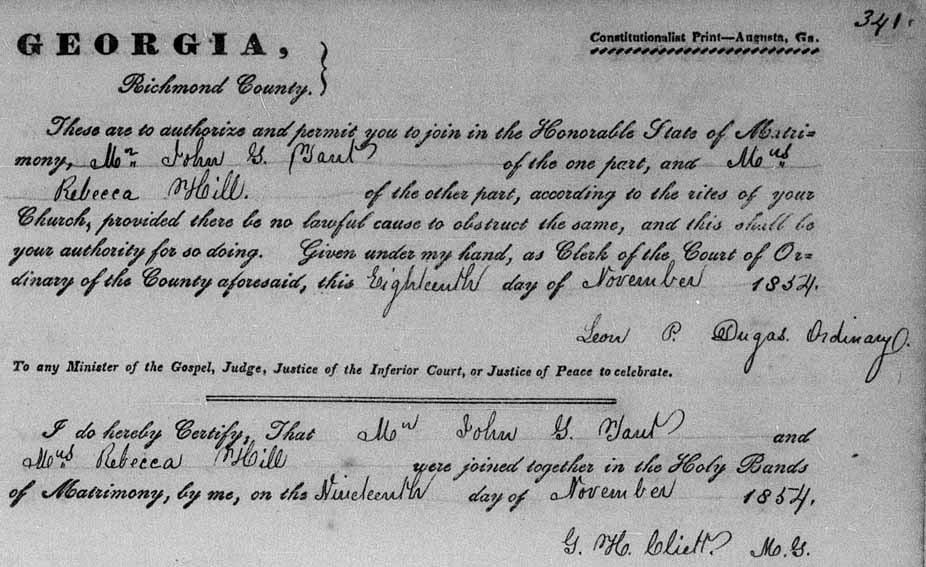 341
GEORGIA,
Constitutionalist Print—Augusta, Ga.
Richmond County.
These are to authorize and permit you to join in the Honorable State of Matri=
mony, Mr John G. Yant of the one part, and Mrs
Rebecca Hill. of the other part, according to the rites of your
Church, provided there be no lawful cause to obstruct the same, and this shall be
your authority for so doing. Given under my hand, as Clerk of the Court of Or=
dinary of the County aforesaid, this Eighteenth day of November 1854.
Leon P. Dugas. Ordinary.
To any Minister of the Gospel, Judge, Justice of the Inferior Court, or Justice of Peace to celebrate.
I do hereby Certify, That Mr John G. Yant and
Mrs Rebecca Hill were joined together in the Holy Bands
of Matrimony, by me, on the Nineteenth day of November 1854.
G. H. Cliett. M.G.